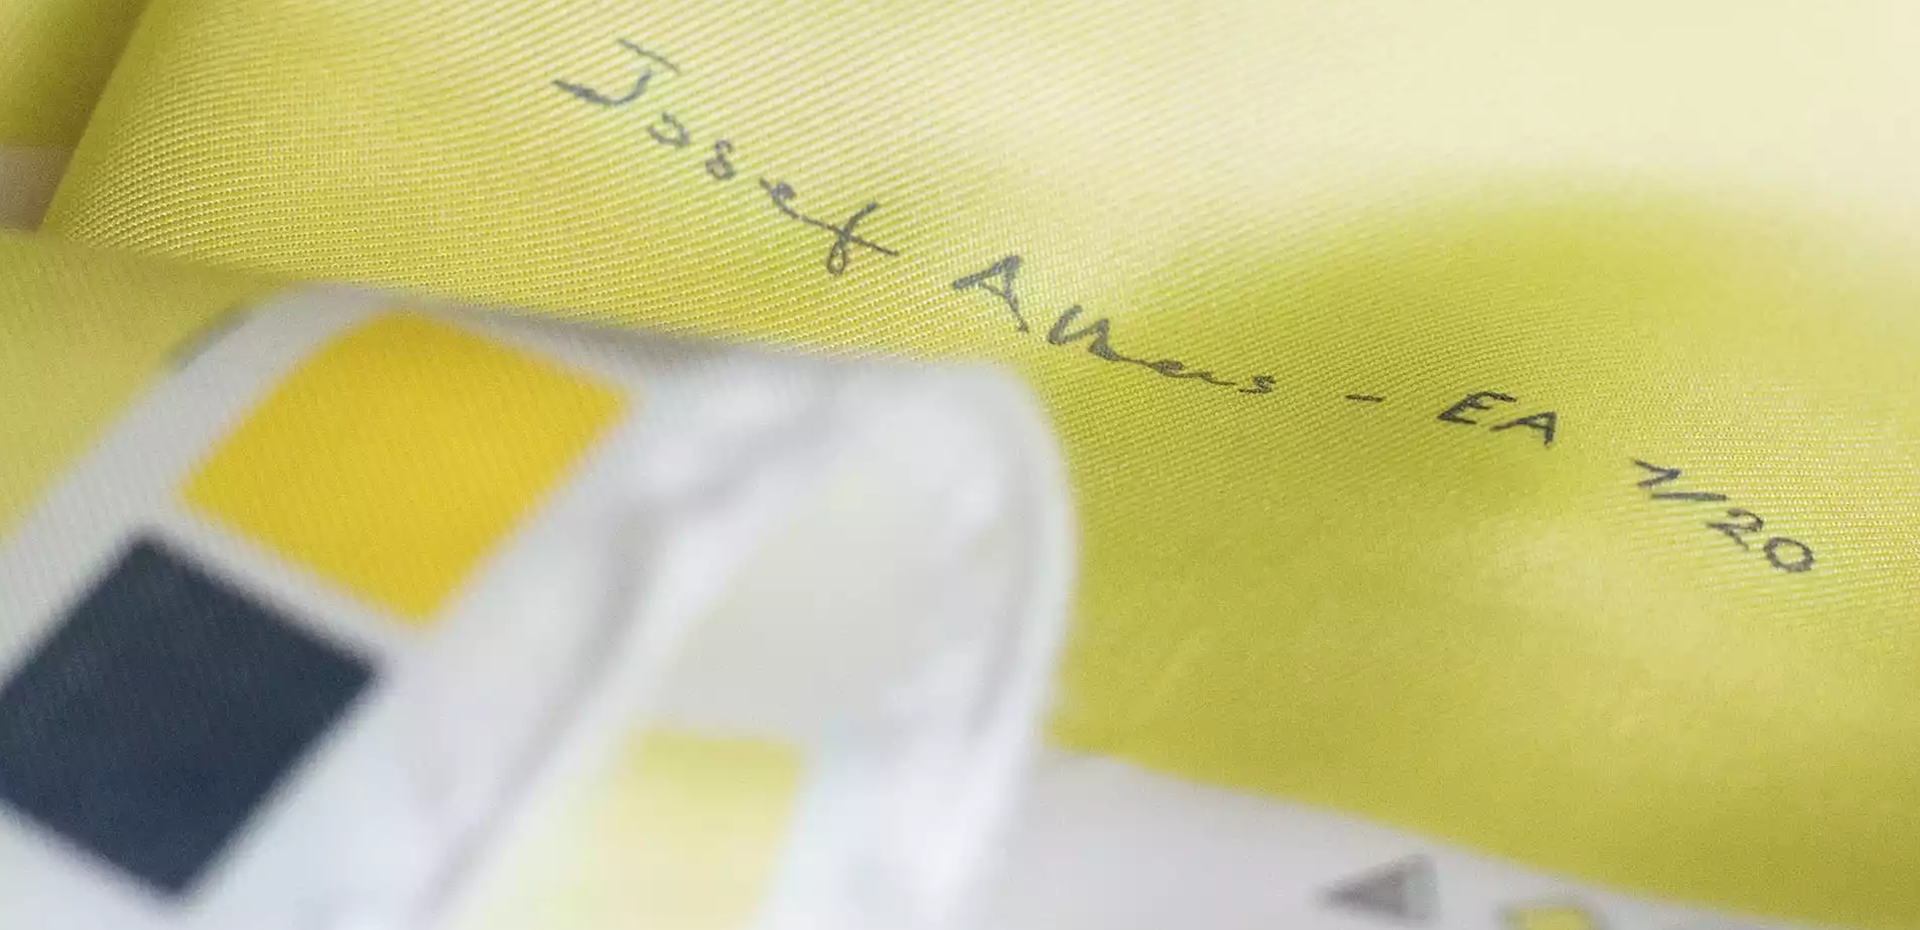 Josef Albers - EA 1/20